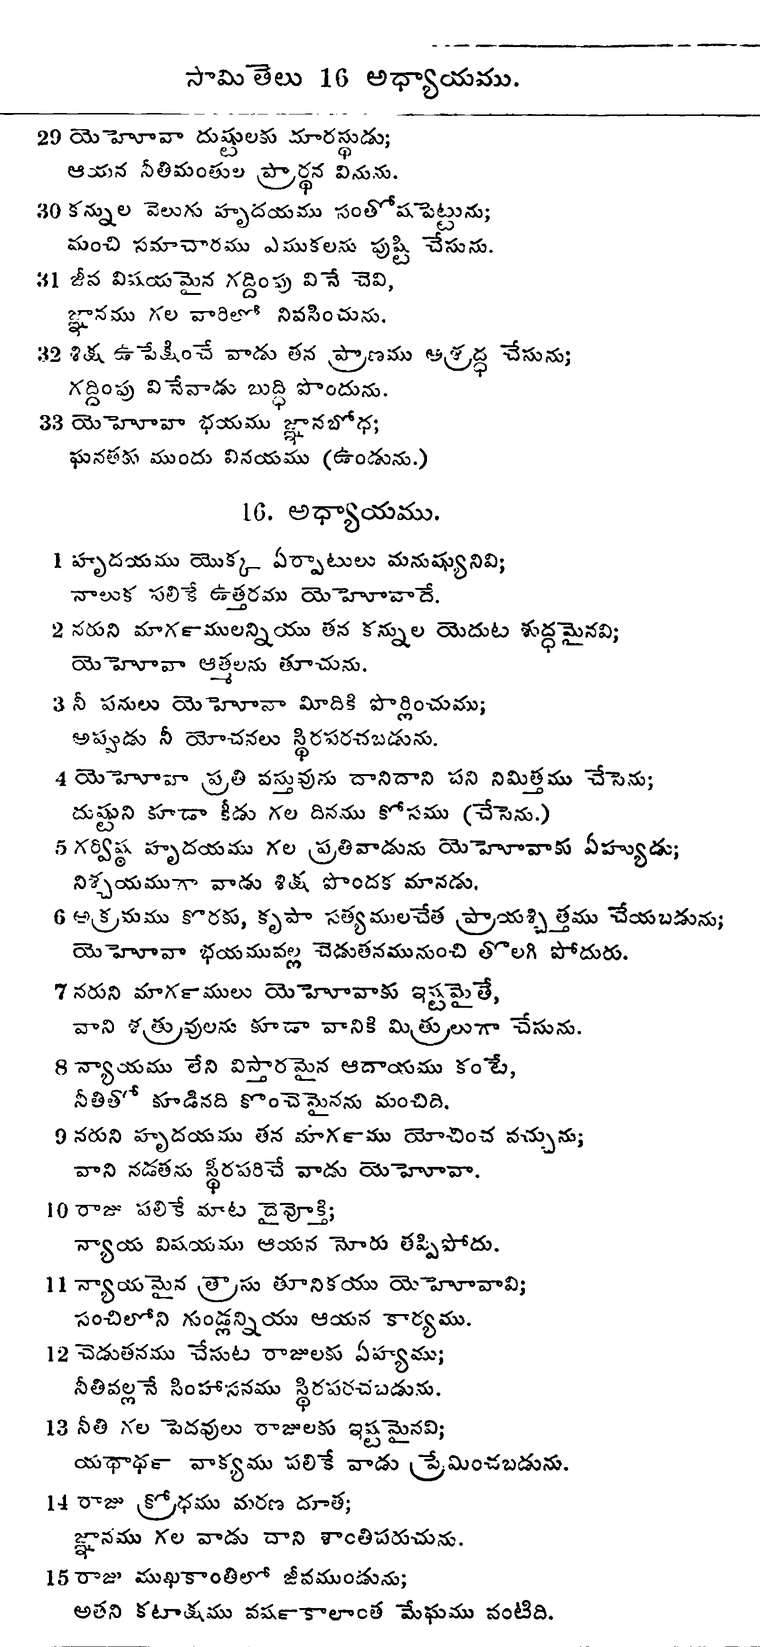 సామితెలు 16 అధ్యాయము.
29 యెహోవా దుష్టులకు దూరస్థుడు;
ఆయన నీతిమంతుల ప్రార్థన వినును.
30 కన్నుల వెలుగు హృదయము సంతోషపెట్టును;
మంచి సమాచారము ఎముకలను పుష్టి చేసును.
31 జీవ విషయమైన గద్దింపు వినే చెవి,
జ్ఞానము గల వారిలో నివసించును.
32 శిక్ష ఉపేక్షించే వాడు తన ప్రాణము అశ్రద్ధ చేసును;
గద్దింపు వినేవాడు బుద్ధి పొందును.
33 యెహోవా భయము జ్ఞానబోధ;
ఘనతకు ముందు వినయము (ఉండును.)
16. అధ్యాయము.
1 హృదయము యొక్క ఏర్పాటులు మనుష్యునివి;
నాలుక పలికే ఉత్తరము యెహోవాదే.
2 నరుని మార్గములన్నియు తన కన్నుల యెదుట శుద్ధమైనవి;
యెహోవా ఆత్మలను తూచును.
3 నీ పనులు యెహోవా మీదికి పొర్లించుము;
అప్పుడు నీ యోచనలు స్థిరపరచబడును.
4 యెహోవా ప్రతి వస్తువును దానిదాని పని నిమిత్తము చేసెను;
దుష్టుని కూడా కీడు గల దినము కోసము (చేసెను.)
5 గర్విష్ఠ హృదయము గల ప్రతివాడును యెహోవాకు ఏహ్యుడు;
నిశ్చయముగా వాడు శిక్ష పొందక మానడు.
6 అక్రమము కొరకు, కృపా సత్యములచేత ప్రాయశ్చిత్తము చేయబడును;
యెహోవా భయమువల్ల చెడుతనమునుంచి తొలగి పోదురు.
7 నరుని మార్గములు యెహోవాకు ఇష్టమైతే,
వాని శత్రువులను కూడా వానికి మిత్రులుగా చేసును.
8 న్యాయము లేని విస్తారమైన ఆదాయము కంటే,
నీతితో కూడినది కొంచెమైనను మంచిది.
9 నరుని హృదయము తన మార్గము యోచించ వచ్చును;
వాని నడతను స్థిరపరిచే వాడు యెహోవా.
10 రాజు పలికే మాట దైవోక్తి;
న్యాయ విషయము ఆయన నోరు తప్పిపోదు.
11 న్యాయమైన త్రాసు తూనికయు యెహోవావి;
సంచిలోని గుండ్లన్నియు ఆయన కార్యము.
12 చెడుతనము చేసుట రాజులకు ఏహ్యము;
నీతివల్లనే సింహాసనము స్థిరపరచబడును.
13 నీతి గల పెదవులు రాజులకు ఇష్టమైనవి;
యథార్థ వాక్యము పలికే వాడు ప్రేమించబడును.
14 రాజు క్రోధము మరణ దూత;
జ్ఞానము గల వాడు దాని శాంతిపరుచును.
15 రాజు ముఖకాంతిలో జీవముండును;
అతని కటాక్షము వర్షకాలాంత మేఘము వంటిది.